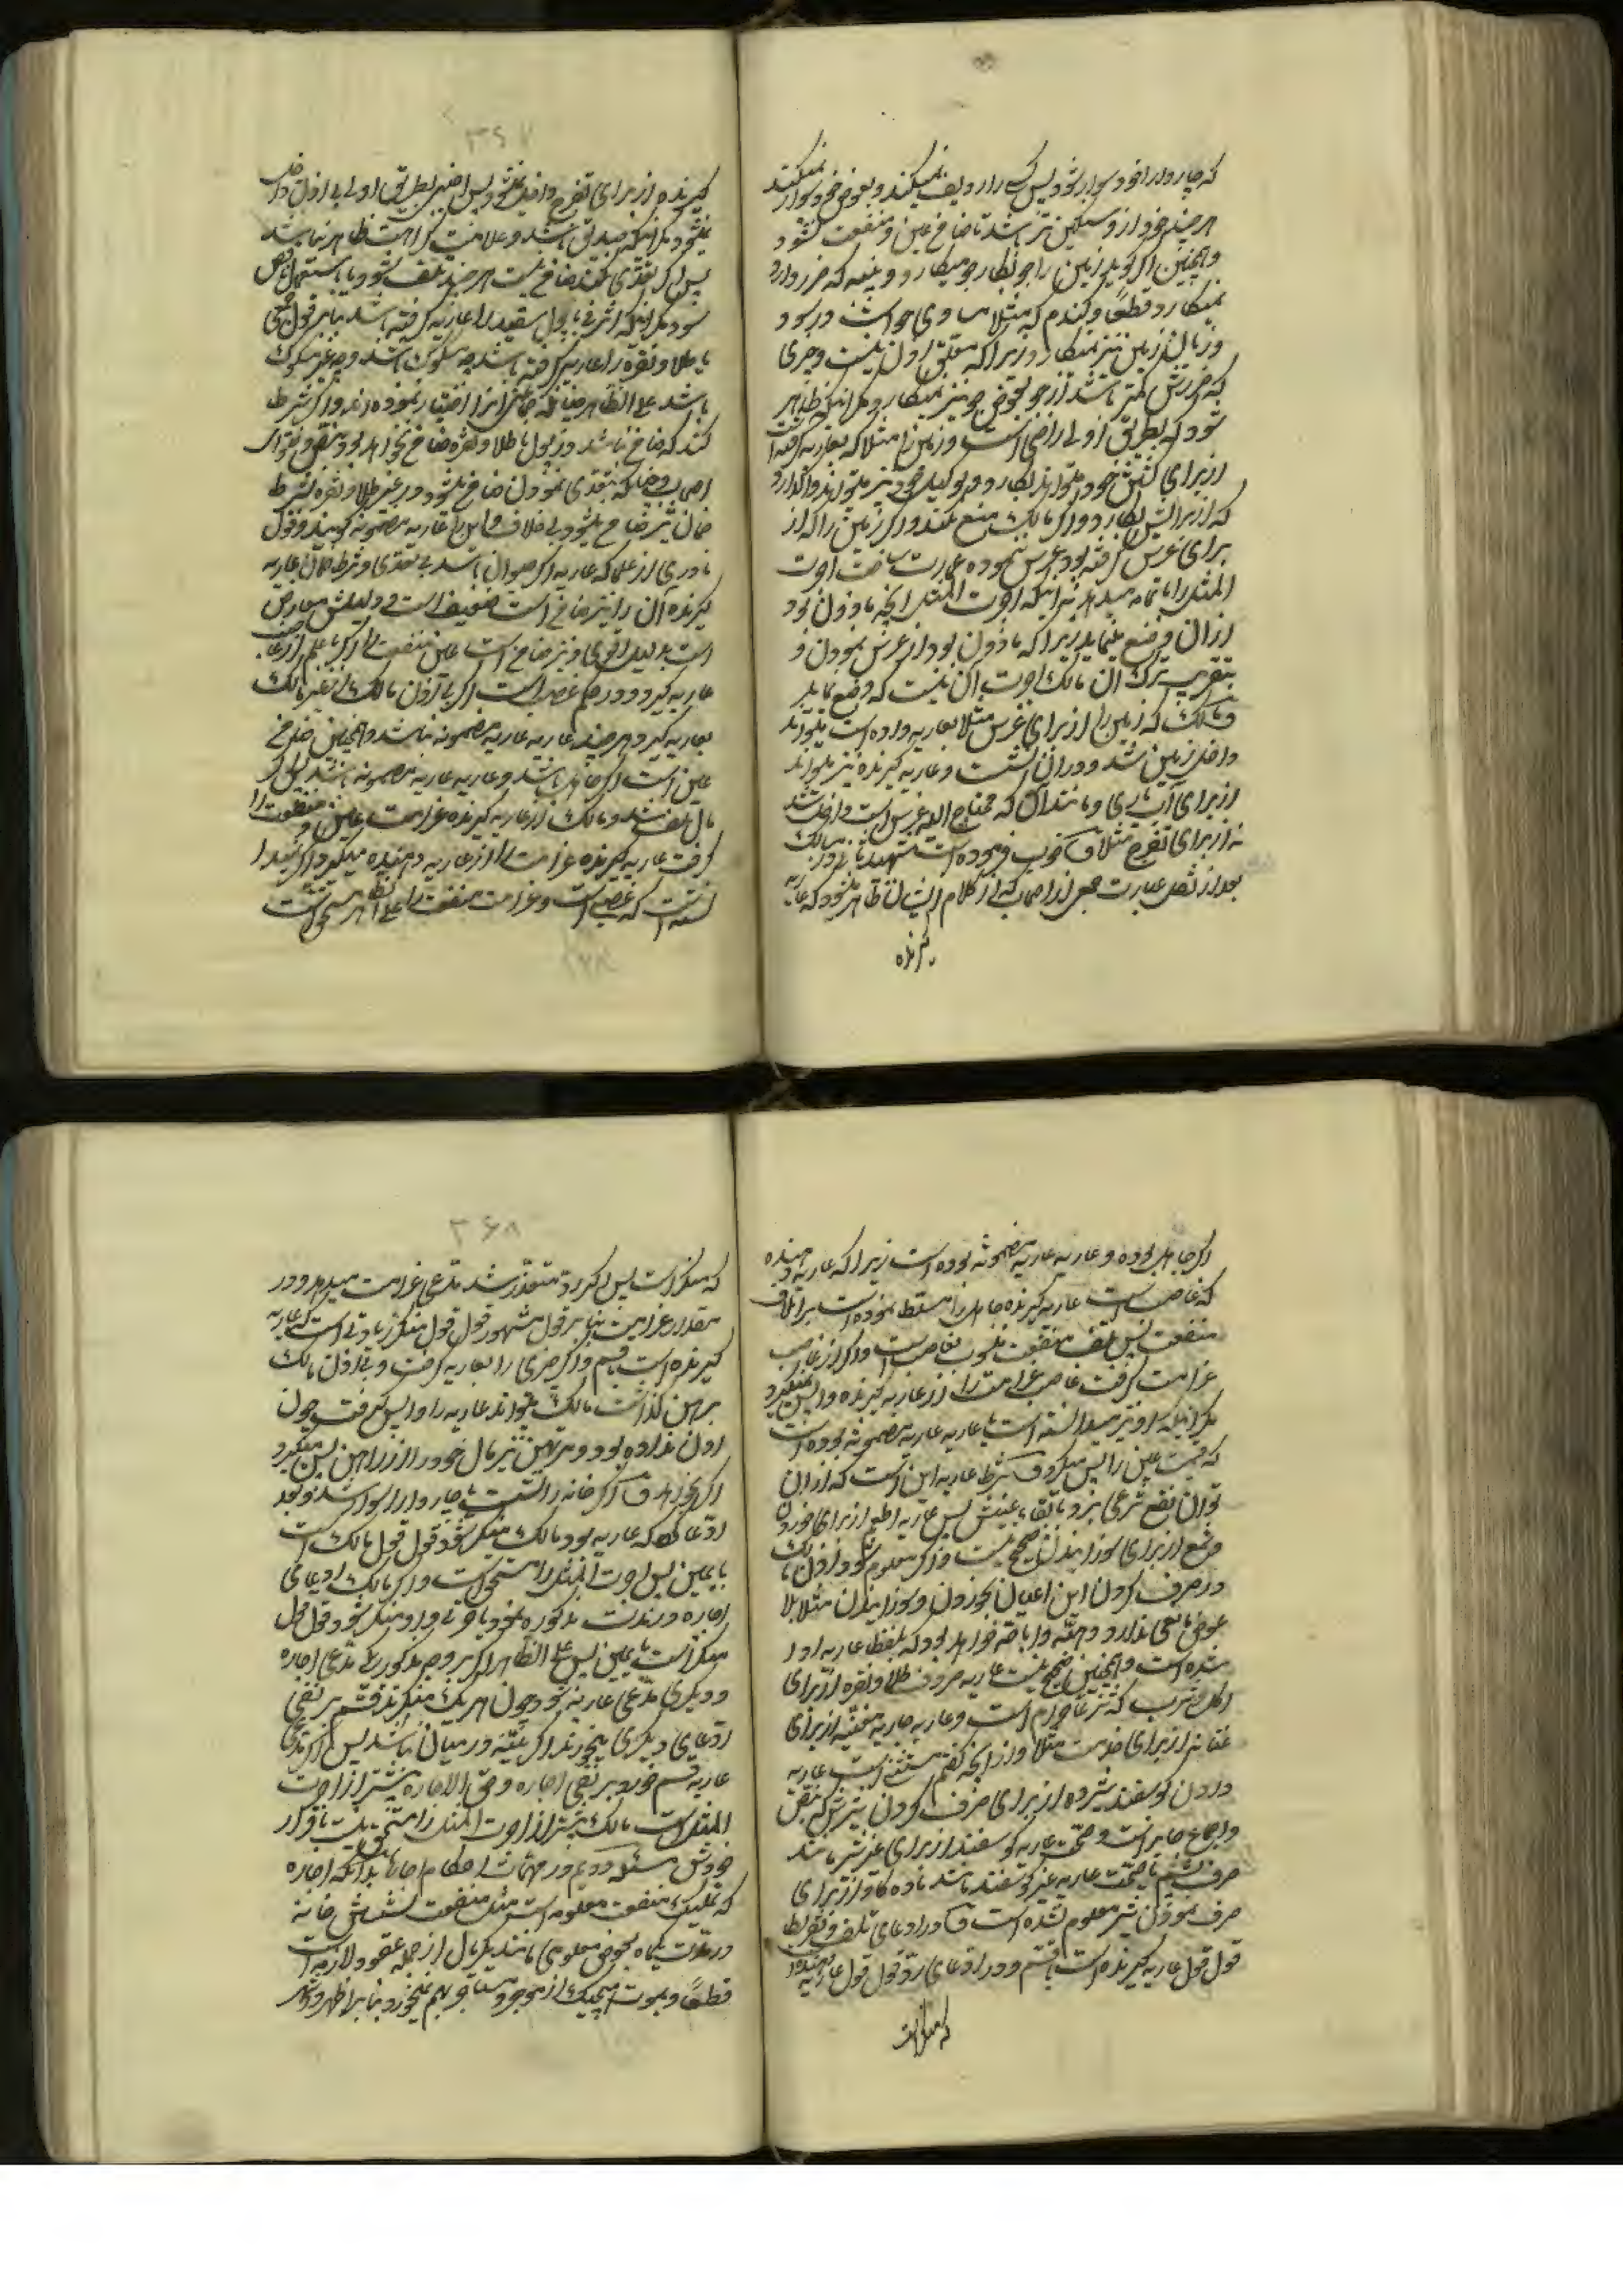 که چاروا را خود سوار شود پس کسی را ردیف نمیکند و بعوض خود سوار نمیکند
هر چند خود از او سنگین تر باشد تا ضامن عین و منفعت نشود
و همچنین اگر گوید زمین را جو بکار جو میکارد و پنبه که ضرر دارد
نمیکارد قطعاً و گندم که مثلا مساوی جو است در سود
و زیان زمین نیز نمیکارد زیرا که متعلق اذن نیست و چیزی
که ضررش کمتر باشد از جو بعوض جو نیز نمیکارد مگر اینکه ظاهر
شود که بطریق اولی راضی است و زمین را مثلا که بعاریه گرفته است
از برای کشتن خود میتواند بکارد و بوکیل خود نیز میتواند واگذارد
که از برایش بکارد و اگر مالک منع کند و اگر زمین را که از
برای غرس گرفته بود غرس ننموده عمارت ساخت اجرت
المثل را بتمامه میدهد نه اینکه اجرت المثل آنچه ماذون بود
از آن وضع نماید زیرا که ماذون بود از غرس نمودن و
بتقریب ترک آن مالک اجرت آن نیست که وضع نماید
و مالک که زمین را از برای غرس مثلا بعاریه داده است میتواند
داخل زمین شد و در آن نشست و عاریه گیرنده نیز میتواند
از برای آب یاری و مانند آن که محتاج الیه غرس است داخل شد
نه از برای تفرج مثلا ف خوب فرموده است شهید ثانی در مسالک
بعد از نقل عبارت جمعی از اصحاب که از کلام ایشان ظاهر میشود که عاریه
گیرنده
۳۶۷
گیرنده از برای تفرج داخل نمیشود پس اجنبی بطریق اولی بی اذن داخل
نمیشود مگر اینکه صدیق باشد و علامت کراهت ظاهر نباشد
پس اگر تعدی نکند ضامن نیست هر چند تلف شود و یا باستعمال ناقص
شود مگر اینکه اشرفی یا پول سفید را عاریه گرفته باشد بنابر قول جمعی
یا طلا و نقره را عاریه گرفته باشد چه مسکوک باشد و چه غیر مسکوک
باشد علی الظاهر چنانکه جماعتی آنرا اختیار نموده اند و اگر شرط
کند که ضامن نباشد در پول یا طلا و نقره ضامن نخواهد بود بنص و فتوای
اصحاب چنانکه بتعدی نمودن ضامن میشود و در غیر طلا و نقره بشرط
ضمان نیز ضامن میشود بی خلاف و این را عاریه مضمونه گویند و قول
نادری از علما که عاریه اگر حیوان باشد بی تعدی و شرط ضمان عاریه
گیرنده آن را نیز ضامن است ضعیف است و دلیلش معارض
است بدلیل اقوی و نیز ضامن است عین و منفعت را اگر با علم از غاصب
عاریه گیرد و در حکم غصب است اگر بی اذن مالک از غیر مالک
بعاریه گیرد هر چند عاریه عاریه مضمونه نباشد و همچنین ضامن
عین است اگر جاهل باشد و عاریه عاریه مضمونه باشد پس اگر
مال تلف شد و مالک از عاریه گیرنده غرامت عین و منفعت را
گرفت عاریه گیرنده غرامت را از عاریه دهنده میگیرد اگر نمیدانسته
است که غصبی است و غرامت منفعت را علی الظاهر مستحق است
اگر جاهل بوده و عاریه عاریه مضمونه بوده است زیرا که عاریه دهنده
که غاصب است عاریه گیرنده جاهل را مسلط نموده است بر اتلاف
منفعت پس تلف منفعت منسوب بغاصب است و اگر از غاصب
غرامت گرفت غاصب غرامت را از عاریه گیرنده واپس نمیگیرد
مگر اینکه او نیز میدانسته است یا عاریه عاریه مضمونه بوده است
که قیمت عین را پس میگیرد ف شرط عاریه این است که از آن
توان نفع شرعی برد با بقاء عینش پس عاریه اطعمه از برای خوردن
و شمع از برای سوزانیدن صحیح نیست و اگر معلوم شود اذن مالک
در صرف کردن این اعیان بخوردن و سوزانیدن مثلا بلا
عوض مانعی ندارد و هبه و اباحه خواهد بود که بلفظ عاریه ادا
شده است و همچنین صحیح نیست عاریه ظروف طلا و نقره از برای
اکل و شرب که شرعا حرام است و عاریه جاریه مغنیه از برای
غنا نه از برای خدمت مثلا و از آنچه گفتیم مستثنی است عاریه
دادن گوسفند شیرده از برای صرف کردن شیرش که بنص
و اجماع جایز است و صحت عاریه گوسفند از برای غیر شیر مانند
صرف پشم یا صحت عاریه غیر گوسفند مانند ماده گاو از برای
صرف نمودن شیر معلوم نشده است ف در ادعای تلف و تفریط
قول قول عاریه گیرنده است با قسم و در ادعای رد قول قول عاریه دهنده است
که منکر است
۳۶۸
که منکر است پس اگر رد متعذر شد مدعی غرامت میدهد و در
مقدار غرامت بنابر قول مشهور قول قول منکر زیادتی است که عاریه
گیرنده است با قسم و اگر چیزی را بعاریه گرفت و بی اذن مالک
برهن گذاشت مالک میتواند عاریه را واپس گرفت چون
اذن نداده بود و مرتهن نیز مال خود را از راهن پس میگیرد
اگر بخواهد ف اگر در خانه نشست یا چاروا را سوار شد و بعد
ادعا کرد که عاریه بود و مالک منکر شود قول قول مالک است
با یمین پس اجرت المثل را مستحق است و اگر مالک ادعای
اجاره در مدت مذکوره نمود یا قبل از او و منکر شود قول قول
منکر است با یمین پس علی الظاهر اگر بر وجه مذکور یکی مدعی اجاره
و دیگری مدعی عاریه شود چون هر یک منکرند قسم بر نفی
ادعای دیگری میخورند اگر بینه در میان نباشد پس اگر مدعی
عاریه قسم خورد بر نفی اجاره و حق الاجاره بیشتر از اجرت
المثل است مالک بیشتر از اجرت المثل را مستحق نیست باقرار
خودش مسئله دویم در مهمات احکام اجاره بدانکه اجاره
که تملیک منفعت معلومه است مثل منفعت نشستن خانه
در مدت یکماه بعوض معلومی مانند یکریال از جمله عقود لازمه است
قطعاً و بموت هیچیک از موجر و مستاجر بهم نمیخورد بنابر اظهر و اشهر